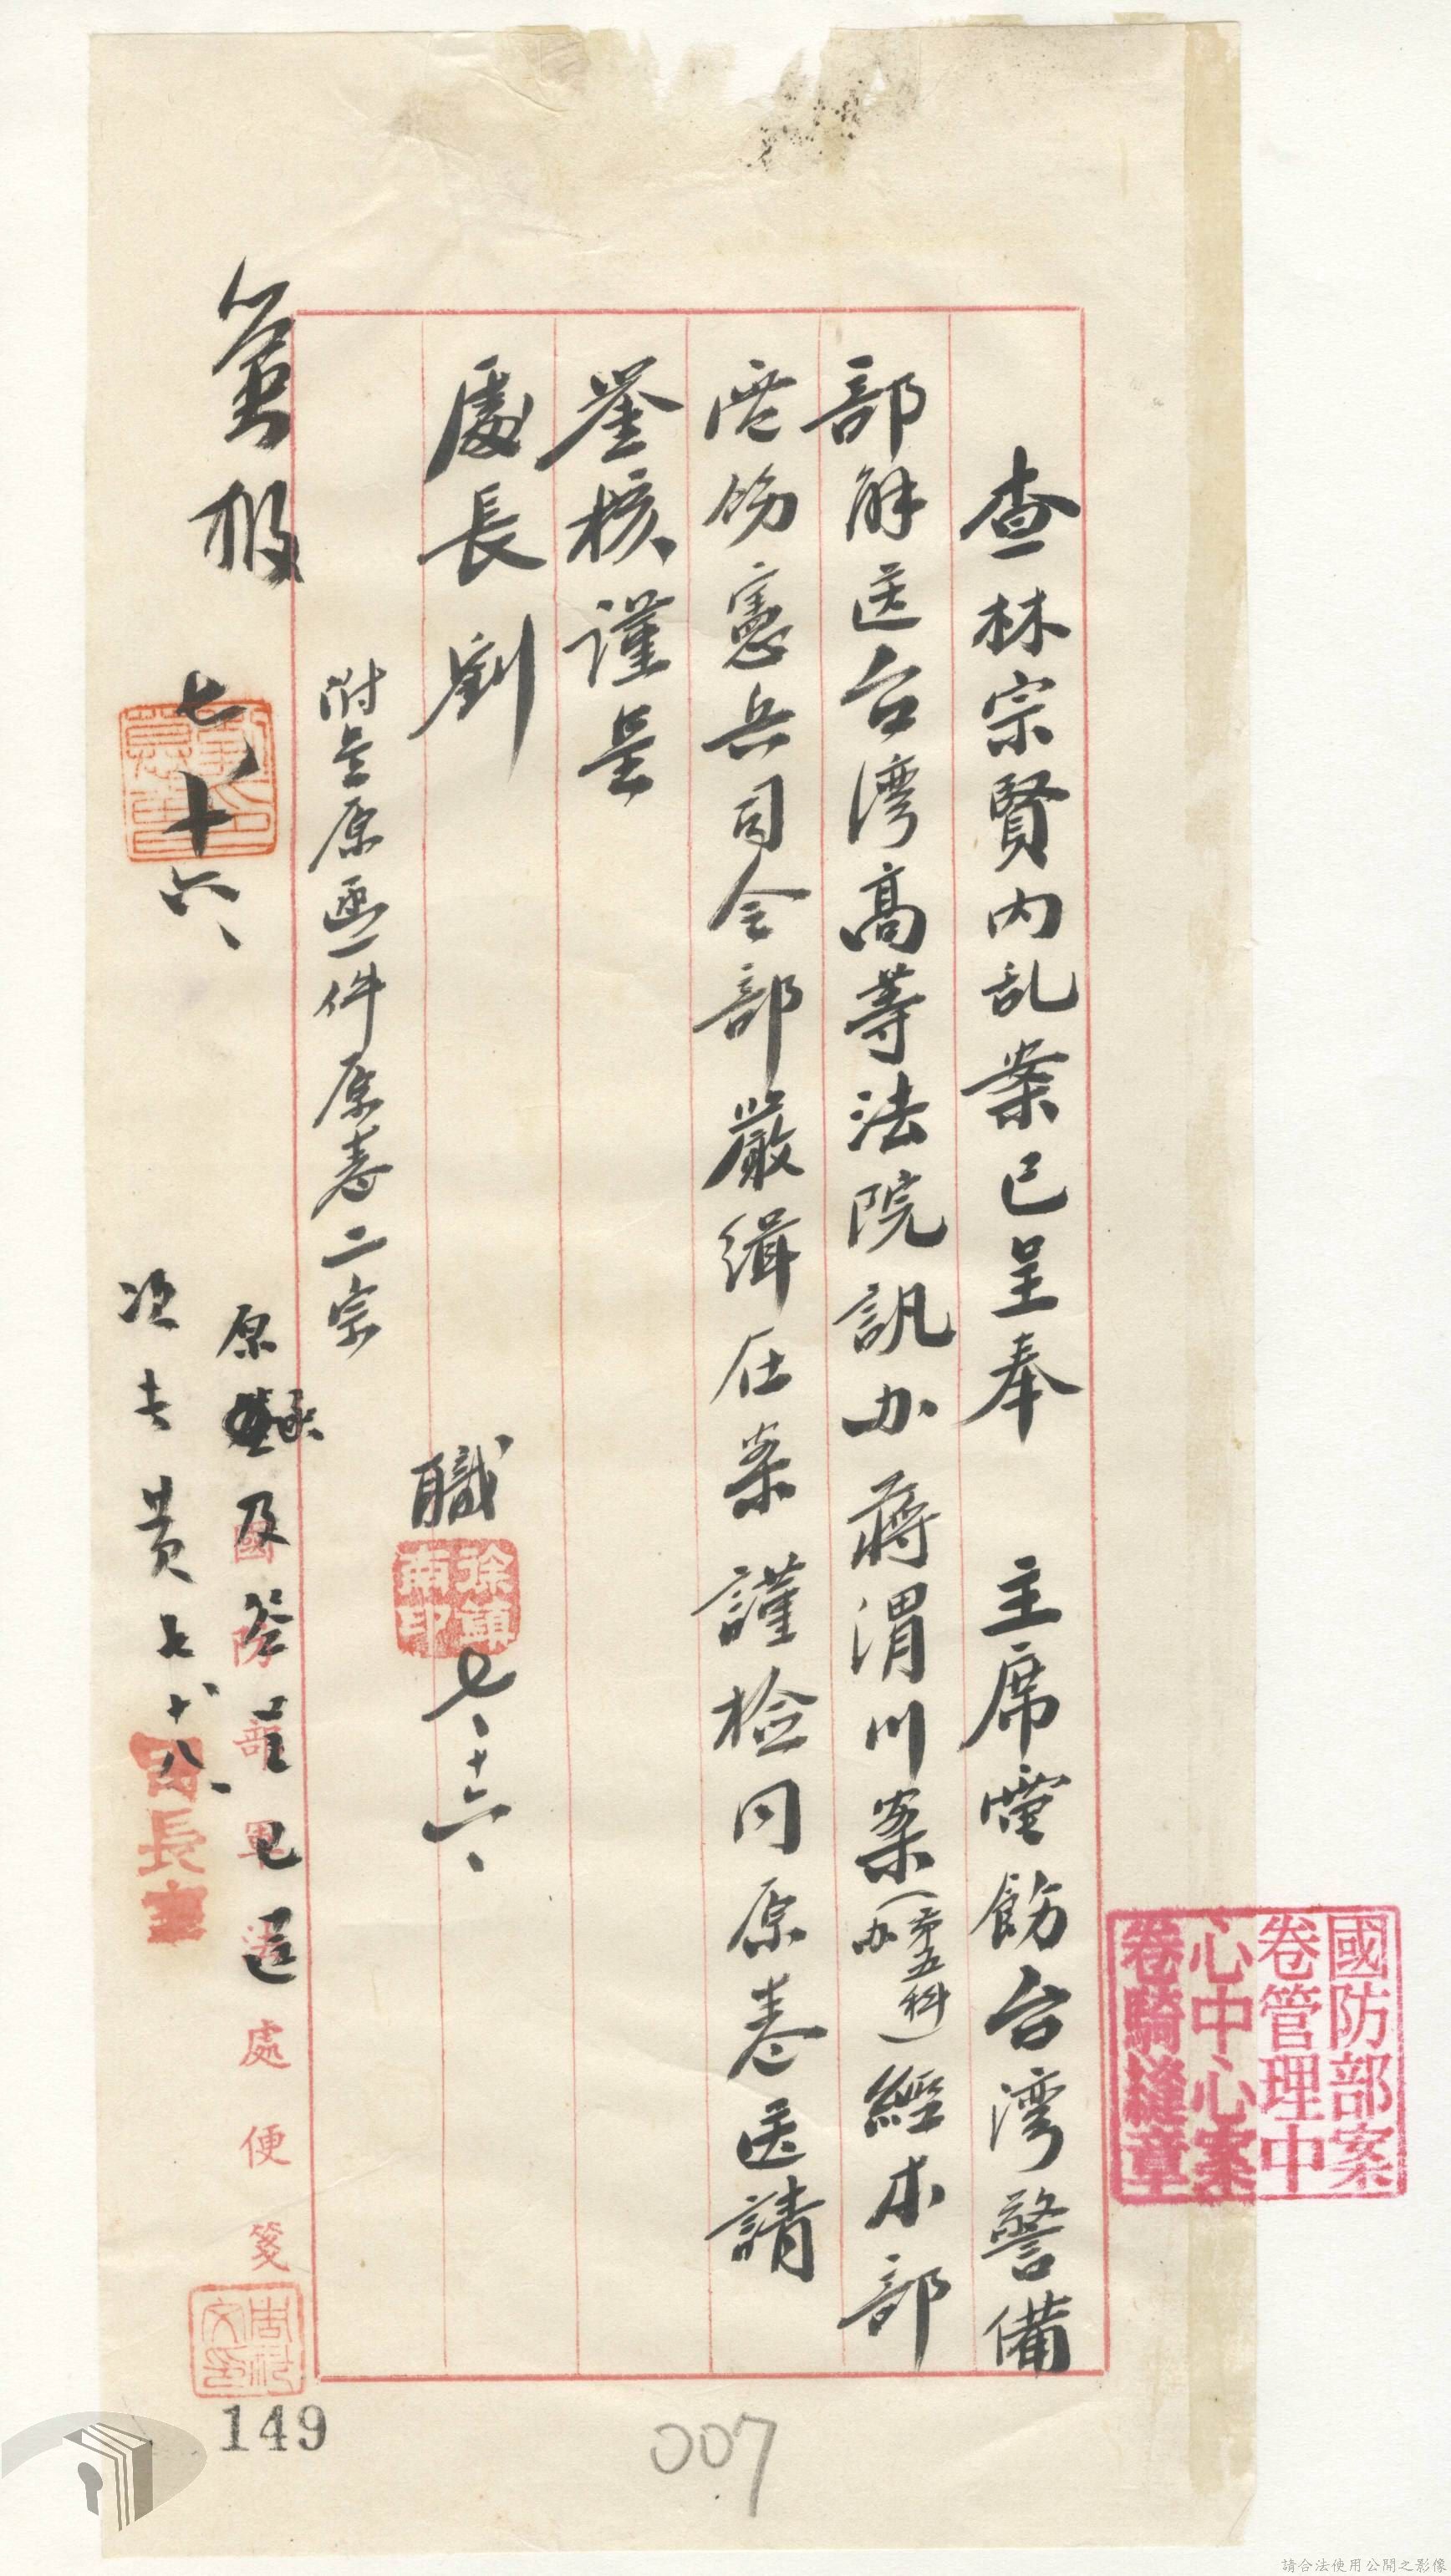 查林宗賢內乱案已呈奉　主席電飭台湾警備
部解送台湾高等法院訊办蔣渭川案(第五科办)經本部
飭憲兵司令部嚴緝在案謹檢同原卷送請
鑒核謹呈
處長劉
附呈原函一件原卷二宗
職
徐鎮南印
七、十六、
七、十六、
原
及
呈已送
黃七十八、
國防部軍法處便箋
國防部案
卷管理中
心中心案
卷騎縫章
149
007
請合法使用公開之影像